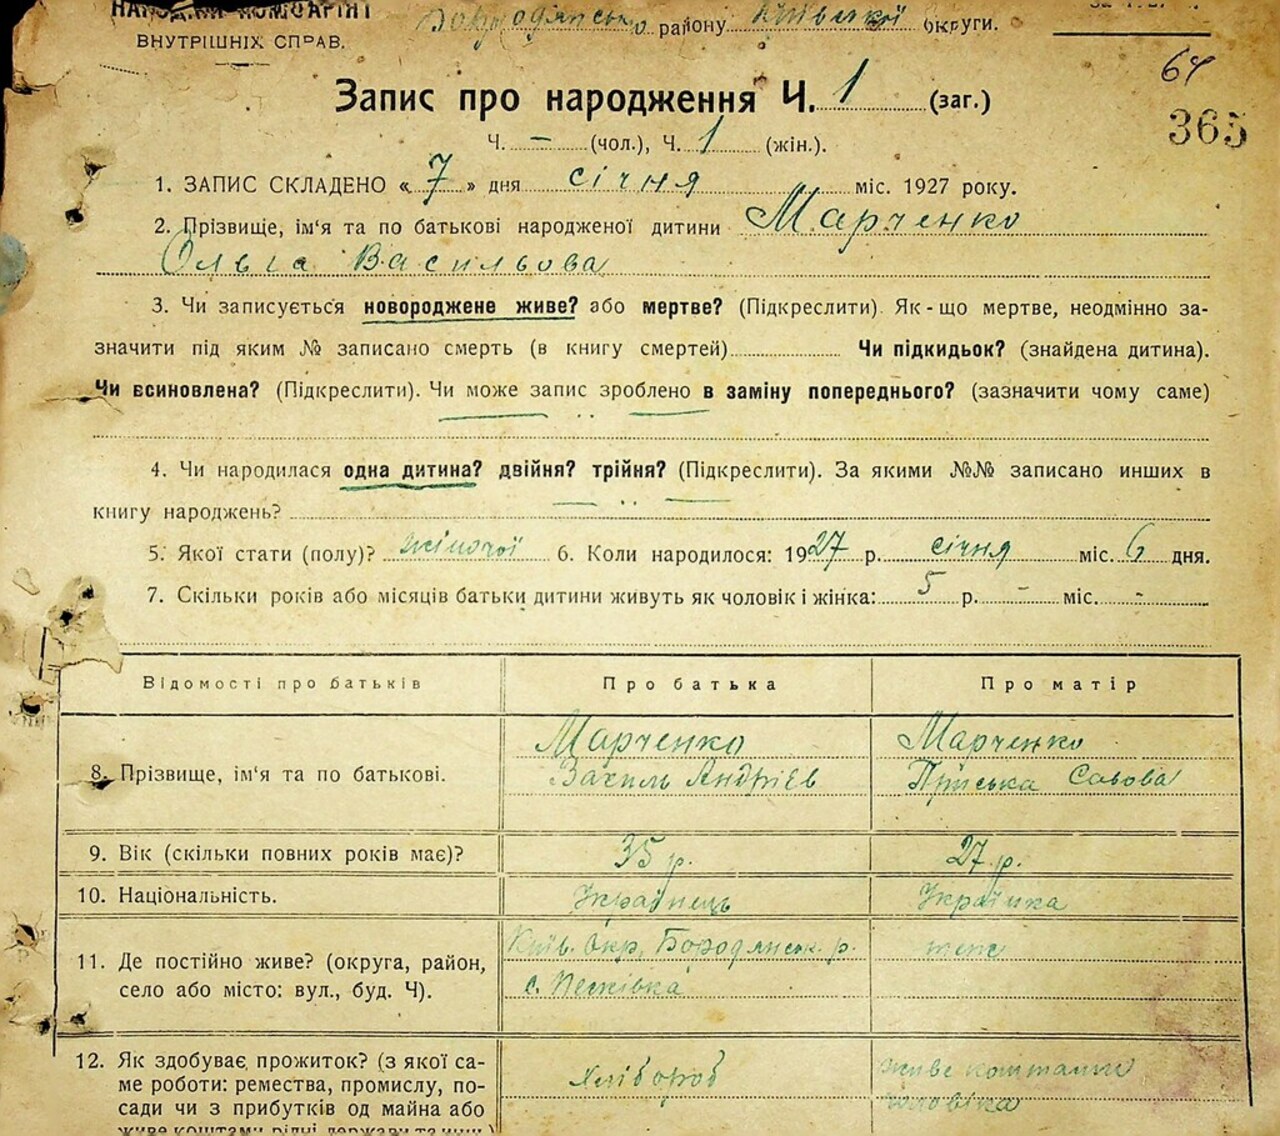 НАРОДНИЙ КОМІСАРІЯТ
ВНУТРІШНІХ СПРАВ.
Бородянського району Київської округи.
64
365
Запис про народження Ч. 1 (заг.)
Ч. – (чол.), Ч. 1 (жін.).
1. ЗАПИС СКЛАДЕНО « 7 » дня січня міс. 1927 року.
2. Прізвище, ім'я та по батькові народженої дитини Марченко
Ольга Васильова
3. Чи записується новороджене живе? або мертве? (Підкреслити). Як-що мертве, неодмінно за-
значити під яким № записано смерть (в книгу смертей) Чи підкидьок? (знайдена дитина).
Чи всиновлена? (Підкреслити). Чи може запис зроблено в заміну попереднього? (зазначити чому саме)
4. Чи народилася одна дитина? двійня? трійня? (Підкреслити). За якими №№ записано инших в
книгу народжень?
5. Якої стати (полу)? жіночої 6. Коли народилося: 1927 р. січня міс. 6 дня.
7. Скільки років або місяців батьки дитини живуть як чоловік і жінка: 5 р. – міс. –
Відомості про батьків Про батька Про матір
Марченко Марченко
8. Прізвище, ім'я та по батькові. Андрієв Пріська Савова
9. Вік (скільки повних років має)? 35 р. 27 р.
10. Національність. Українець Українка
Київ. Окр, Бородянськ. р. теж
11. Де постійно живе? (округа, район,
село або місто: вул., буд. Ч). с. Пісківка
12. Як здобуває прожиток? (з якої са-
ме роботи: ремества, промислу, по-
сади чи з прибутків од майна або
живе коштами рідні, держави та инш.)
Хлібороб живе коштами
чоловіка